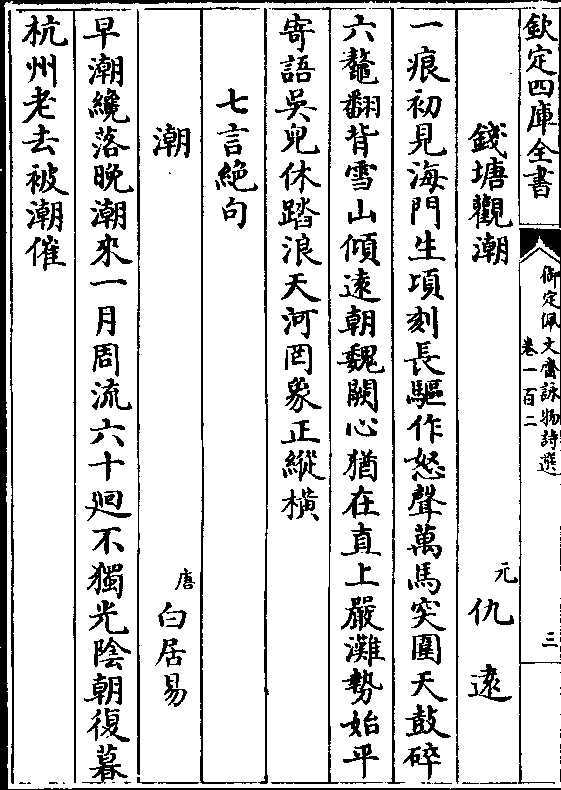 欽定四庫全書
御定佩文齋詠物詩選
卷一百二
三
錢塘觀潮
元 仇遠
一痕初見海門生項刻長驅作怒聲萬馬突圍天鼓碎
六鼇翻背雪山傾遠朝魏闕心猶在直上嚴灘勢始平
寄語吳兒休踏浪天河罔象正縱橫
七言絶句
潮
唐 白居易
早潮纔落晚潮來一月周流六十廻不獨光陰朝復暮
杭州老去被潮催